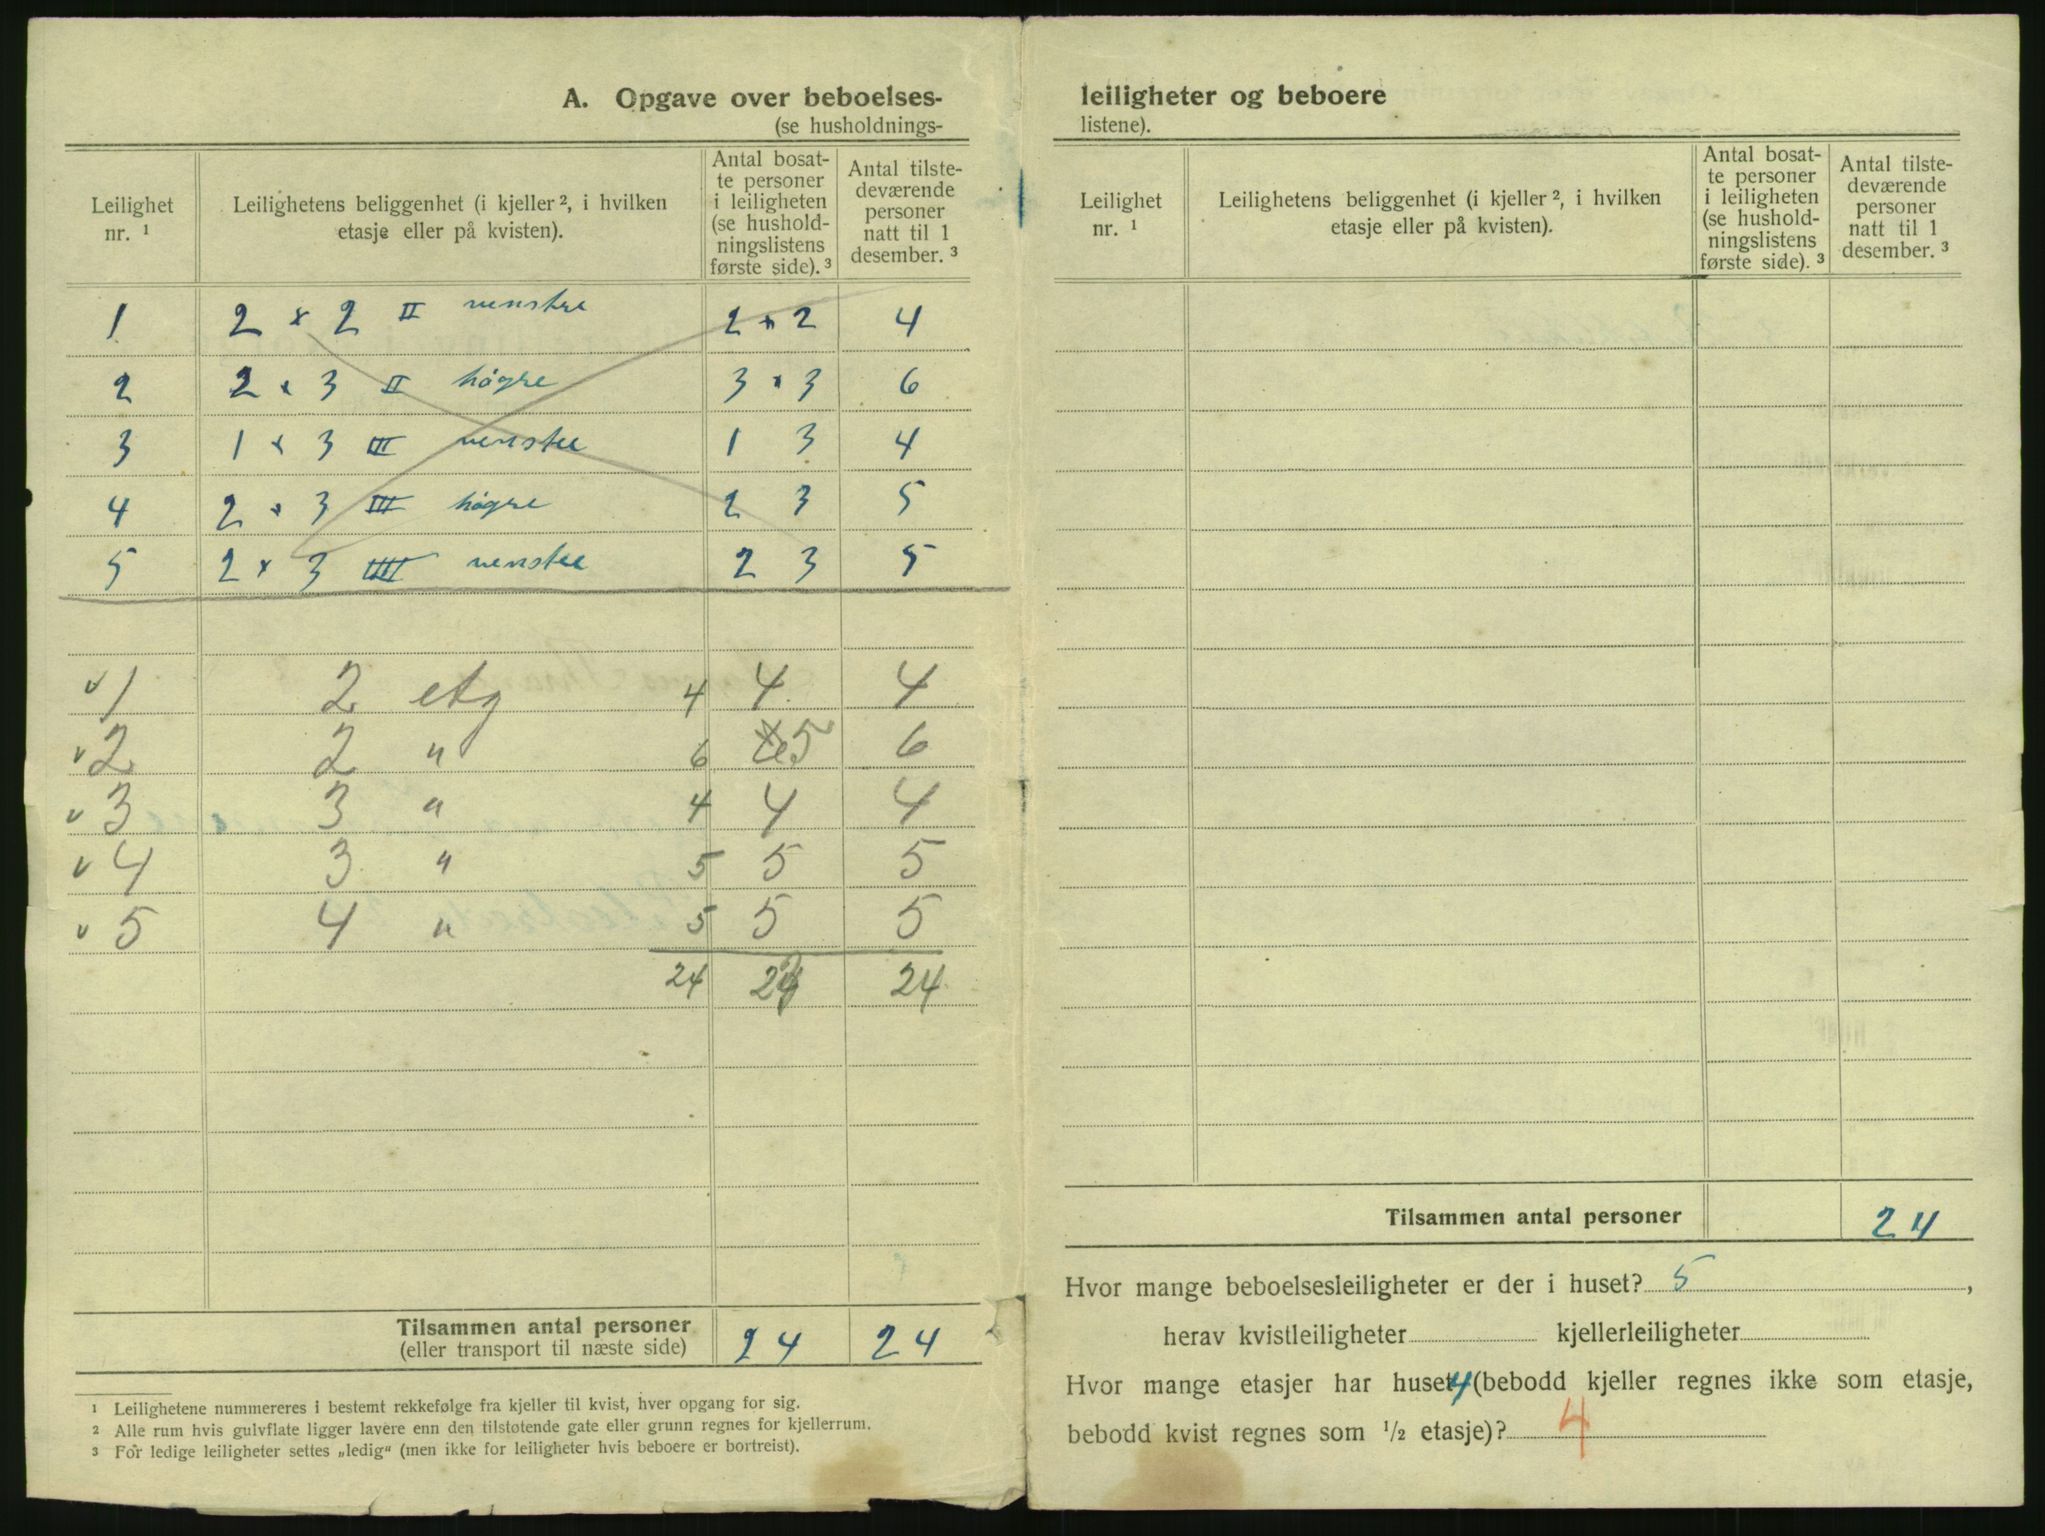 A. Opgave over beboelses-
(se husholdnings-
Leilighet nr. 1
Leilighetens beliggenhet (i kjeller 2, i hvilken etasje eller på kvisten).
Antal bosatte personer i leiligheten (se husholdningslistens første side). 3
Antal tilstedeværende personer natt til 1 desember. 3
1 2 × 2 II venstre 2 × 2 4
2 2 × 3 II høgre 3 × 3 6
3 1 × 3 III venstre 1 3 4
4 2 × 3 III høgre 2 3 5
5 2 × 3 IIII venstre 2 3 5
v 1 2 etg 4 4 4
v 2 2 " 6 5 6
v 3 3 " 4 4 4
v 4 3 " 5 5 5
v 5 4 " 5 5 5
24 24
Tilsammen antal personer 24 24
(eller transport til næste side)
1 Leilighetene nummereres i bestemt rekkefølge fra kjeller til kvist, hver opgang for sig.
2 Alle rum hvis gulvflate ligger lavere enn den tilstøtende gate eller grunn regnes for kjellerrum.
3 For ledige leiligheter settes „ledig“ (men ikke for leiligheter hvis beboere er bortreist).
leiligheter og beboere
listene).
Leilighet nr. 1
Leilighetens beliggenhet (i kjeller 2, i hvilken etasje eller på kvisten).
Antal bosatte personer i leiligheten (se husholdningslistens første side). 3
Antal tilstedeværende personer natt til 1 desember. 3
Tilsammen antal personer 24
Hvor mange beboelsesleiligheter er der i huset? 5,
herav kvistleiligheter kjellerleiligheter
Hvor mange etasjer har huset 4 (bebodd kjeller regnes ikke som etasje,
bebodd kvist regnes som 1/2 etasje)? 4